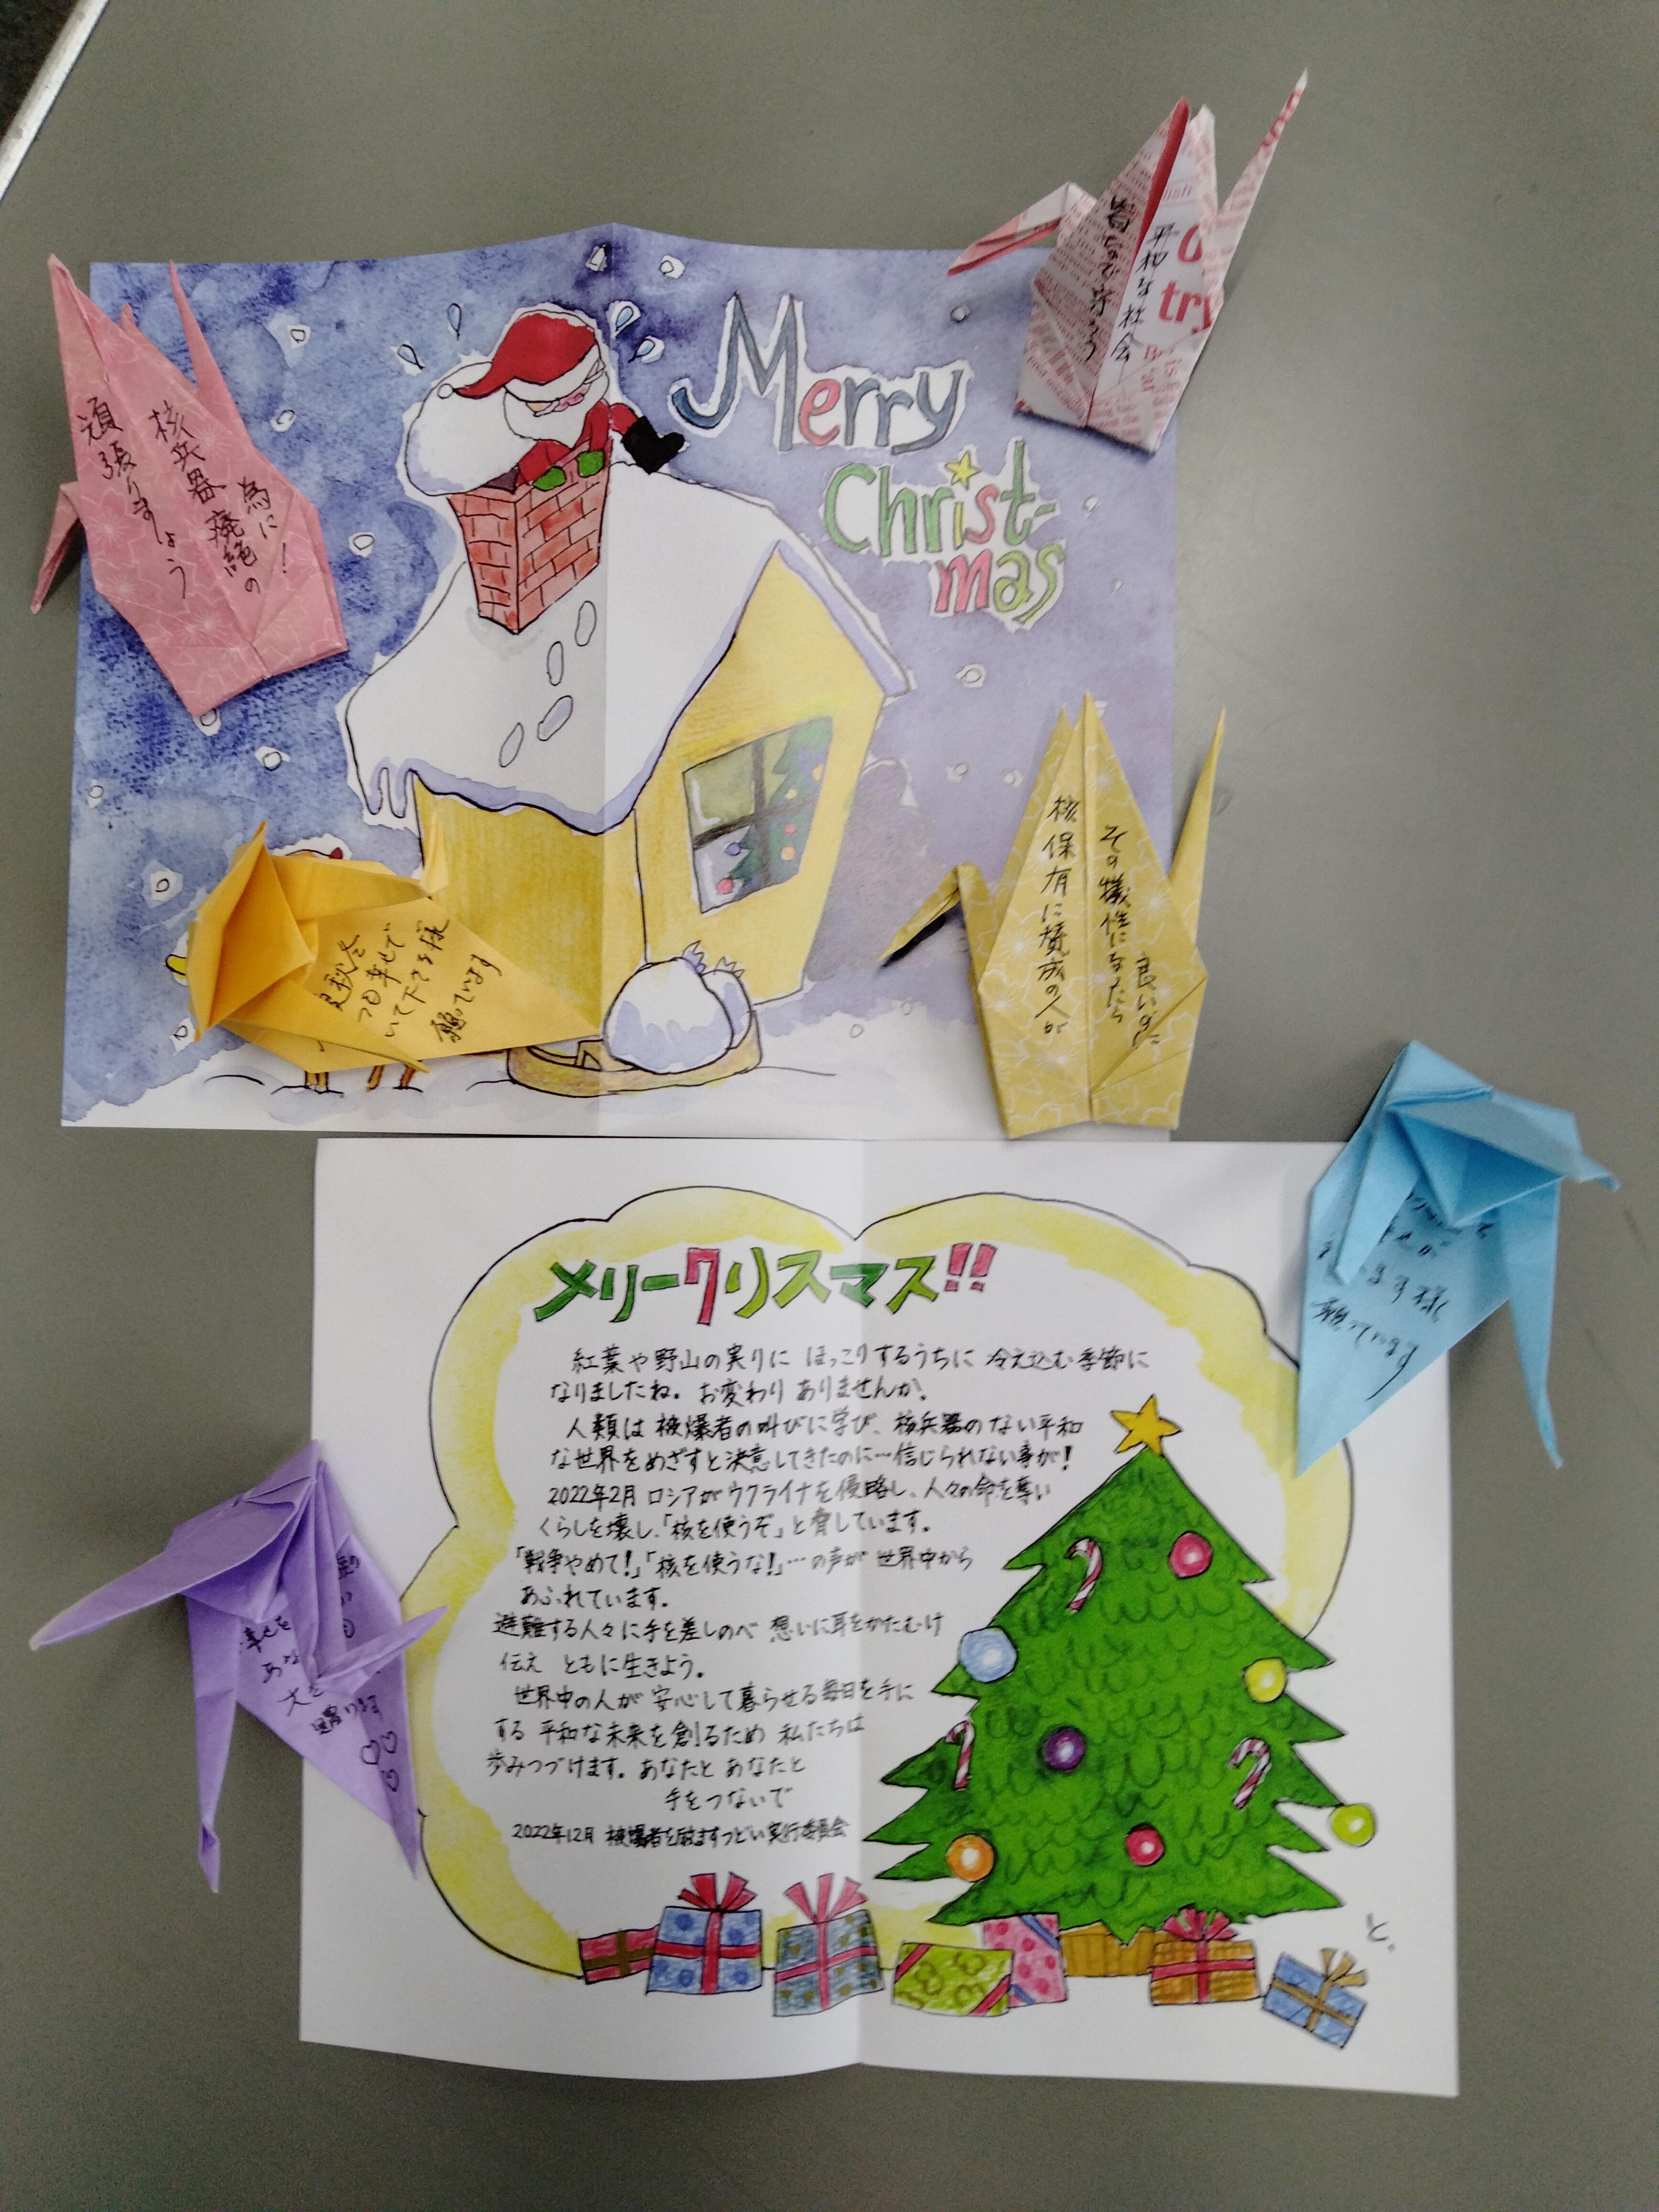 Merry
Christ-
mas
平和な社会
核兵器廃絶の
為に！
頑張りましょう
その犠牲になったら
良いのだ
核保有に賛成の人が
夏秋冬
幸せで
いて下さる様
願っています
メリークリスマス!!
紅葉や野山の実りに ほっこりするうちに 冷え込む季節に
なりましたね。お変わり ありませんか。
人類は 被爆者の叫びに学び、核兵器のない平和
な世界をめざすと決意してきたのに…信じられない事が！
2022年2月 ロシアがウクライナを侵略し、人々の命を奪い
くらしを壊し、「核を使うぞ」と脅しています。
「戦争やめて！」「核を使うな！」…の声が 世界中から
あふれています。
避難する人々に手を差しのべ 想いに耳をかたむけ
伝え ともに生きよう。
世界中の人が 安心して暮らせる毎日を手に
する 平和な未来を創るため 私たちは
歩みつづけます。あなたと あなたと
手をつないで
2022年12月 被爆者を励ますつどい実行委員会
と。
ます様に
願っています
幸せを
贈ります